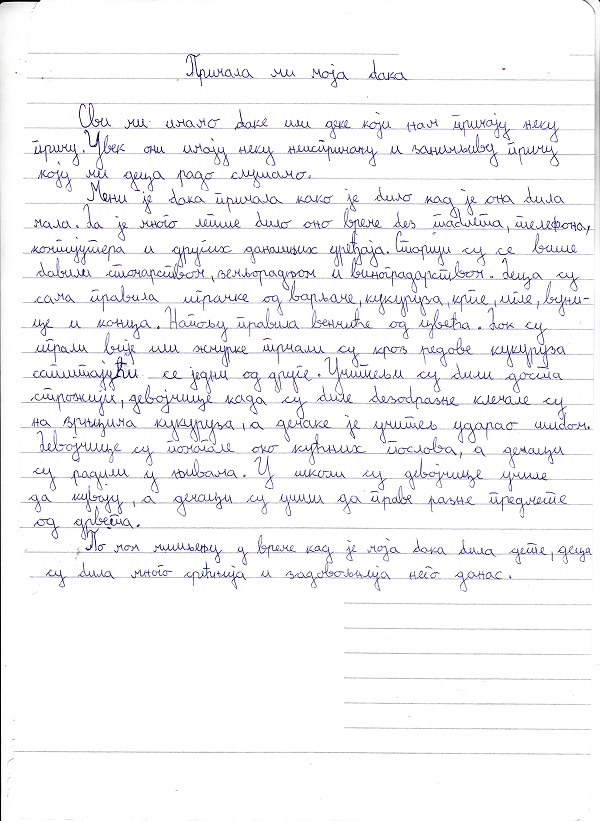 Причала ми моја бака
Сви ми имамо баке или деке који нам причају неку
причу. Увек они имају неку неиспричану и занимљиву причу
коју ми деца радо слушамо.
Мени је бака причала како је било кад је она била
мала. Да је много лепше било оно време без таблета, телефона,
компјутера и других данашњих уређаја. Старији су се више
бавили сточарством, земљорадњом и виноградарством. Деца су
сама правила играчке од варјаче, кукуруза, крпе, игле, вуни-
це и конца. Напољу правила венчиће од цвећа. Док су
играли вије или жмурке трчали су кроз редове кукуруза
саплитајући се једни од друге. Учитељи су били доста
строжији, девојчице када су биле безобразне клечале су
на зрнцима кукуруза, а дечаке је учитељ ударао шибом.
Девојчице су помагале око кућних послова, а дечаци
су радили у њивама. У школи су девојчице училе
да кувају, а дечаци су учили да праве разне предмете
од дрвета.
По мом мишљењу у време кад је моја бака била дете, деца
су била много срећнија и задовољнија него данас.